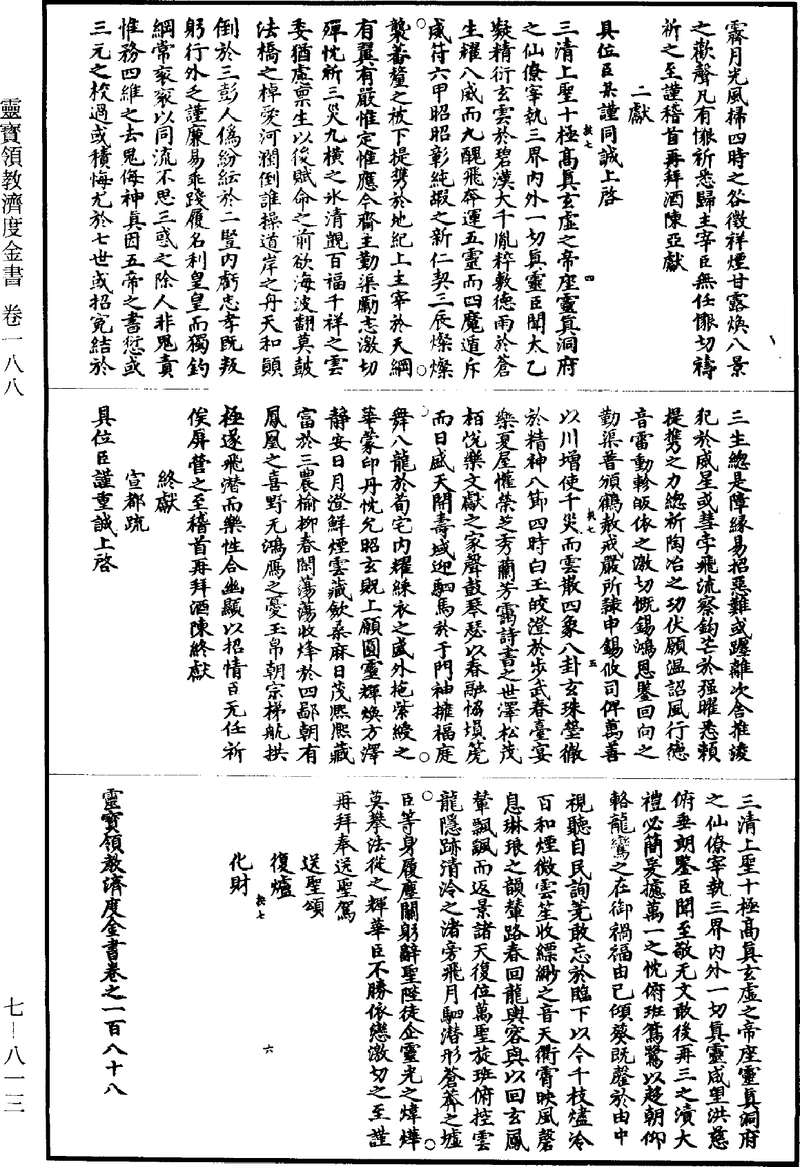 霽月光風掃四時之咎徵祥煙甘露煥八景
之歡聲凡有懇祈悉歸主宰臣無任懇切禱
祈之至謹稽首再拜酒陳亞獻
二獻
具位臣某謹同誠上啓
三清上聖十極高真玄虛之帝座靈真洞府
之仙僚宰執三界內外一切真靈臣聞太乙
凝精衍玄雲於碧漢大千胤粹敷德雨於蒼
生耀八威而九醜飛奔運五靈而四魔遁斥
咸符六甲昭昭彰純嘏之新仁契三辰燦燦
襲蕃釐之被下提攜於地紀上主宰於天綱
有翼有嚴惟定惟應今齋主勤渠勵志激切
殫忱祈三災九橫之氷清覬百福千祥之雲
委猶慮禀生以後賦命之前欲海波翻莫鼓
法橋之棹愛河瀾倒誰操道岸之舟天和顛
倒於三彭人偽紛紜於二豎內虧忠孝既叛
躬行外之謹廉易乖踐履名利皇皇而獨釣
綱常寂寂以同流不思三惑之除人非鬼責
惟務四維之去鬼侮神真因五帝之書愆或
三元之校過或積悔尤於七世或招冤結於
三生總是障緣易招惡難或躔離次舍推淩
犯於威星或彗孛飛流察鈞芒於强曜悉賴
提攜之力總祈陶冶之功伏願溫詔風行德
音雷動軫皈依之激切慨錫鴻恩鑒回向之
勤渠普頒鶴教戒嚴所隸申錫攸司俾萬善
以川增使千災而雲散四象八卦玄珠瑩徹
於精神八節四時白玉皎澄於步武春臺宴
樂夏屋懽榮芝秀蘭芳靄詩書之世澤松茂
栢悅樂文獻之家聲鼓琴瑟以春融協塤篪
而日盛天開壽域迎駟馬於于門神擁福庭
舞八龍於荀宅內耀綵衣之盛外拖紫綬之
華蒙印丹忱允昭玄貺上願圓靈輝煥方澤
靜安日月澄鮮煙雲藏斂桑麻日茂熙熙藏
富於三農榆柳春閑蕩蕩收烽於四鄙朝有
鳳凰之喜野无鴻鴈之憂玉帛朝宗梯航拱
極遂飛潛而樂性合幽顯以招情臣无任祈
俟屏營之至稽首再拜酒陳終獻
終獻
宣都疏
具位臣謹重誠上啓
三清上聖十極高真玄虛之帝座靈真洞府
之仙僚宰執三界內外一切真靈咸望洪慈
俯垂朗鑒臣聞至敬无文敢後再三之瀆大
禮必簡爰攄萬一之忱俯班鴛鷺以趍朝仰
輅龍鸞之在御禍福由己傾葵既罄於由中
視聽自民詢芻敢忘於臨下以今千枝燼冷
百和煙微雲笙收縹緲之音天衢霄映風磬
息琳琅之韻輦路春回龍輿容與以回玄鳳
輦飄颻而返景諸天復位萬聖旋班俯控雲
龍隱跡清泠之渚旁飛月駟潛形蒼莽之墟
臣等身履塵闤躬辭聖陛徒企靈光之煒燁
莫攀法從之輝華臣不勝依戀激切之至謹
再拜奉送聖駕
送聖頌
復爐
化財
靈寶領教濟度金書卷之一百八十八
靈寶領教濟度金書 卷一八八
七—八一三
四
五
六